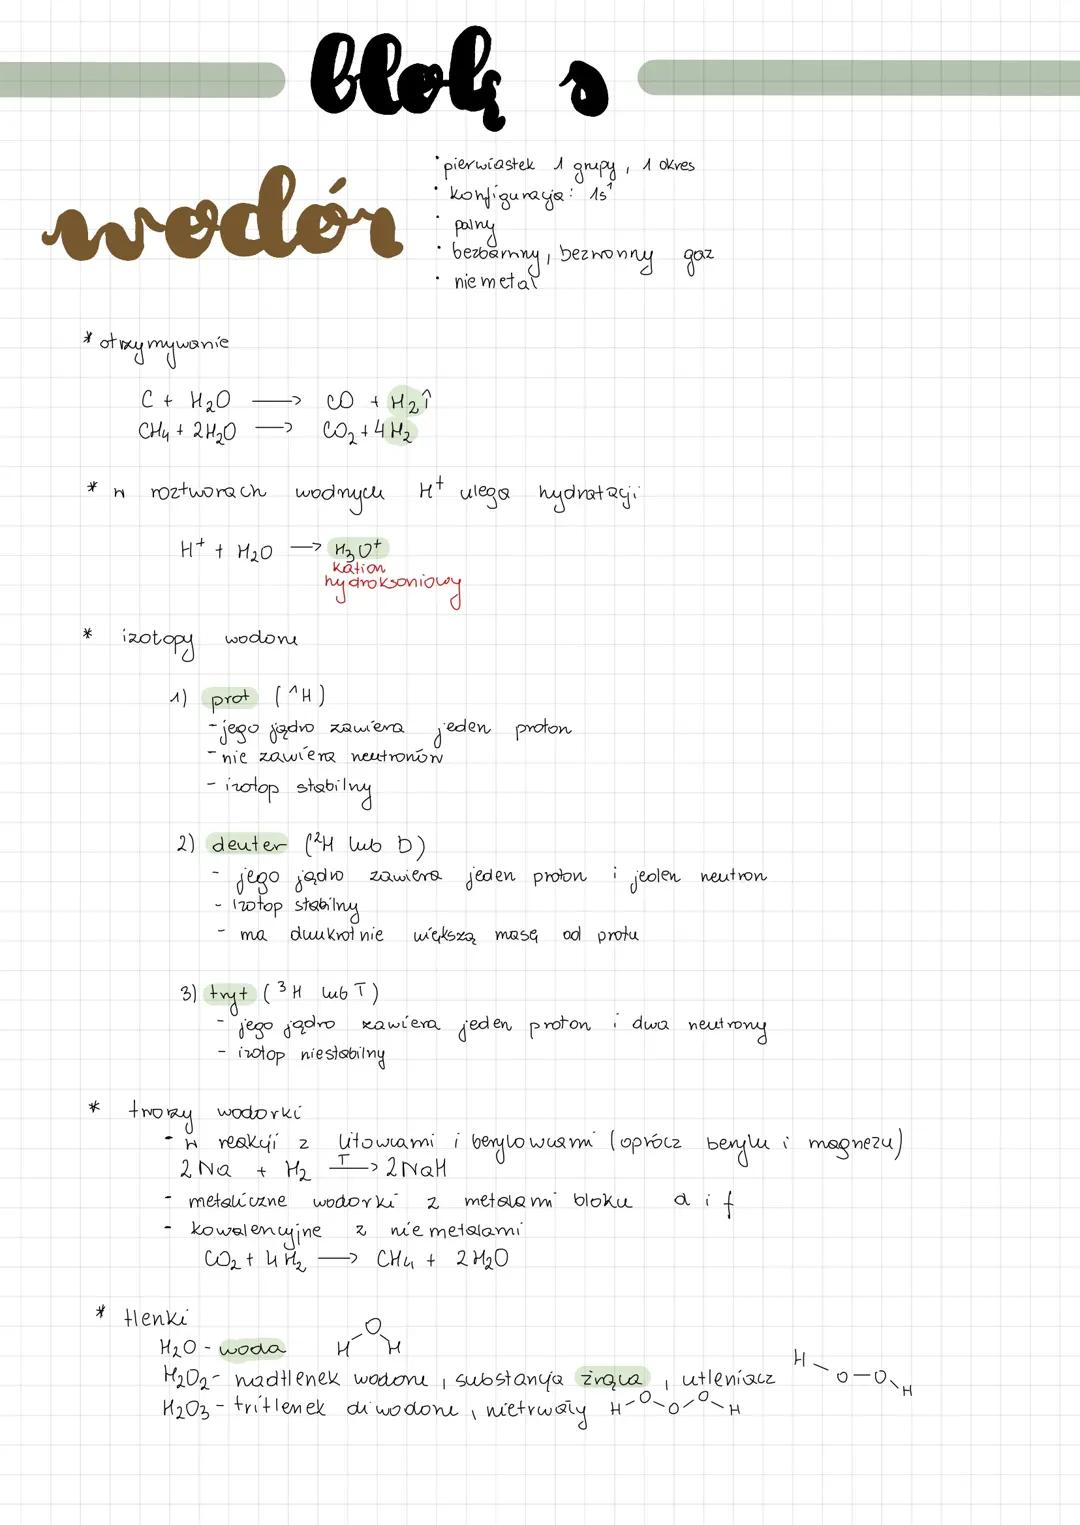 blok s
wodór
• pierwiastek 1 grupy, 1 okres
• konfiguracja: 1s¹
• palny
• bezbarwny, bezwonny gaz
• niemetal
* otrzymywanie
C + H₂O ⟶ CO + H₂↑
CH₄ + 2H₂O ⟶ CO₂ + 4H₂
* w roztworach wodnych H⁺ ulega hydratacji
H⁺ + H₂O ⟶ H₃O⁺
kation
hydroksoniowy
* izotopy wodoru
1) prot (¹H)
- jego jądro zawiera jeden proton
- nie zawiera neutronów
- izotop stabilny
2) deuter (²H lub D)
- jego jądro zawiera jeden proton i jeden neutron
- izotop stabilny
- ma dwukrotnie większą masę od protu
3) tryt (³H lub T)
- jego jądro zawiera jeden proton i dwa neutrony
- izotop niestabilny
* tworzy wodorki
- w reakcji z litowcami i berylowcami (oprócz berylu i magnezu)
2Na + H₂ T⟶ 2NaH
- metaliczne wodorki z metalami bloku d i f
- kowalencyjne z niemetalami
CO₂ + 4H₂ ⟶ CH₄ + 2H₂O
* tlenki
H₂O - woda H O H
H₂O₂ - nadtlenek wodoru, substancja żrąca, utleniacz H-O-O-H
H₂O₃ - tritlenek diwodoru, nietrwały H-O-O-O-H